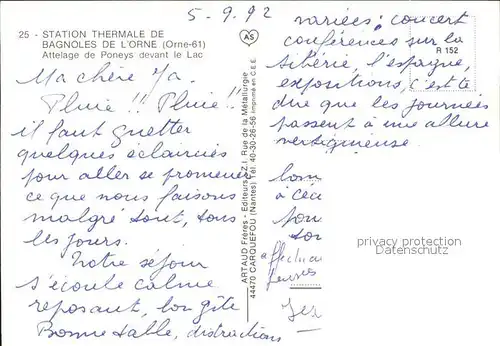 5.9.92
25 - STATION THERMALE DE
BAGNOLES DE L'ORNE (Orne-61)
Attelage de Poneys devant le Lac
Ma chère
Pluie !! Pluie !!
il faut guetter
quelques éclaircies
pour aller se promener
ce que nous faisons
malgré tout, tous
les jours.
Notre séjour
s'écoule calme
reposant, bon gîte
Bonne table, distractions
AS
ARTAUD Frères - Editeurs - Z.I. Rue de la Métallurgie
44470 CARQUEFOU (Nantes) Tél. 40-30-26-56 Imprimé en C.E.E.
R 152
variées : concert
conférences sur la
sibérie, l'espagne,
expositions, c'est à
dire que les journées
passent à une allure
vertigineuse.
à
privacy protection
Datenschutz